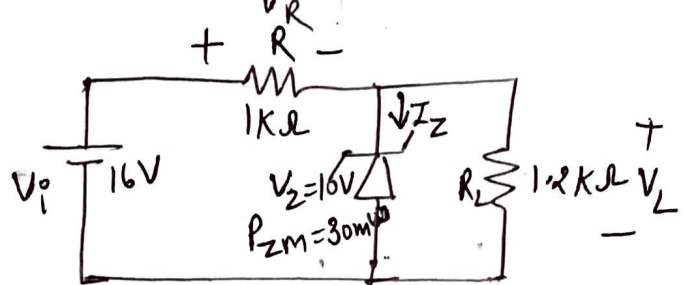 V_R
+ R −
1KΩ
↓I_Z
V_i 16V
V_Z=10V
P_ZM=30mW
R_L 1.2KΩ
+
V_L
−